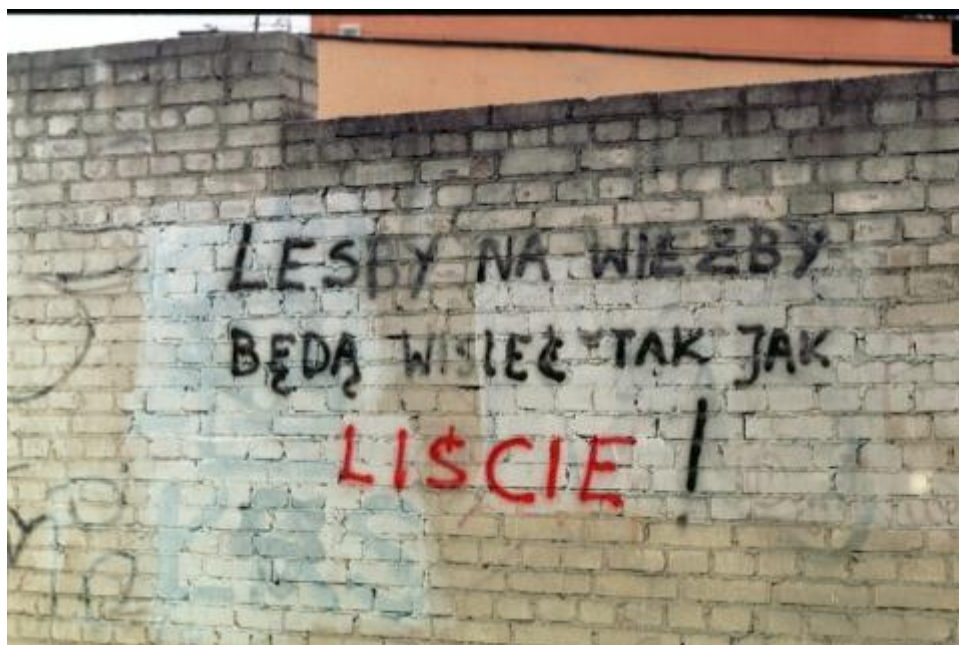 LESBY NA WIEŻBY
BĘDĄ WISIEĆ TAK JAK
LIŚCIE!